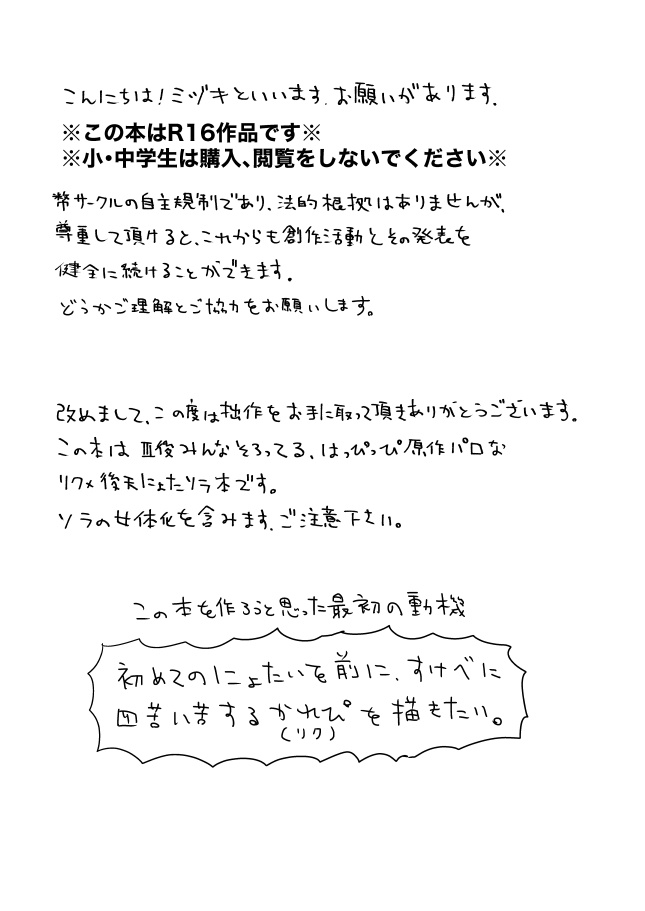 こんにちは！ミヅキといいます。お願いがあります。
※この本はR16作品です※
※小・中学生は購入、閲覧をしないでください※
幣サークルの自主規制であり、法的根拠はありませんが、
尊重して頂けると、これからも創作活動とその発表を
健全に続けることができます。
どうかご理解とご協力をお願いします。
改めまして、この度は拙作をお手に取って頂きありがとうございます。
この本は 皿俊みんなそろってる、はっぴっぴ原作パロな
リクメ後天にょたソラ本です。
ソラの女体化を含みます。ご注意下さい。
この本を作ろうと思った最初の動機
初めてのにょたいを前に、すけべに
四苦い苦するかれぴを描きたい。
(リク)